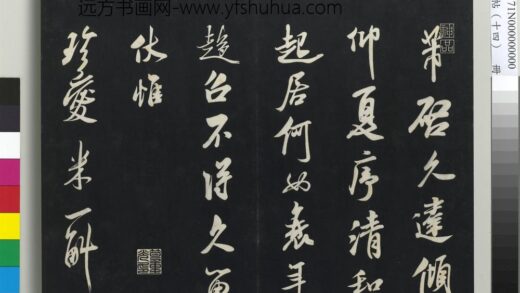 远方书画网-www.yfshuhua.com
芾啓久違傾
仰夏序清和
起居何如衰年
趍召不得久留
伏惟
珍愛米一斛
71N000000000
帖（十四） 冊